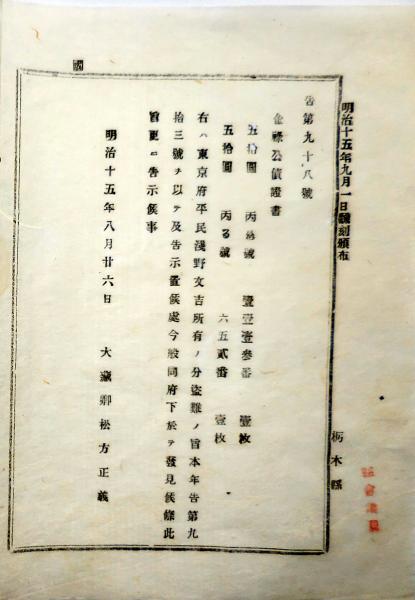 明治十五年九月一日飜刻頒布
栃木縣
告第九十八號
金祿公債證書
五拾圓 丙 號 壹壹壹參番 壹枚
五拾圓 丙る號 六五貳番 壹枚
右ハ東京府平民淺野文吉所有ノ分盜難ノ旨本年告第九
拾三號ヲ以テ及告示置候處今般同府下於テ發見候條此
旨更ニ告示候事
明治十五年八月廿六日 大藏卿松方正義